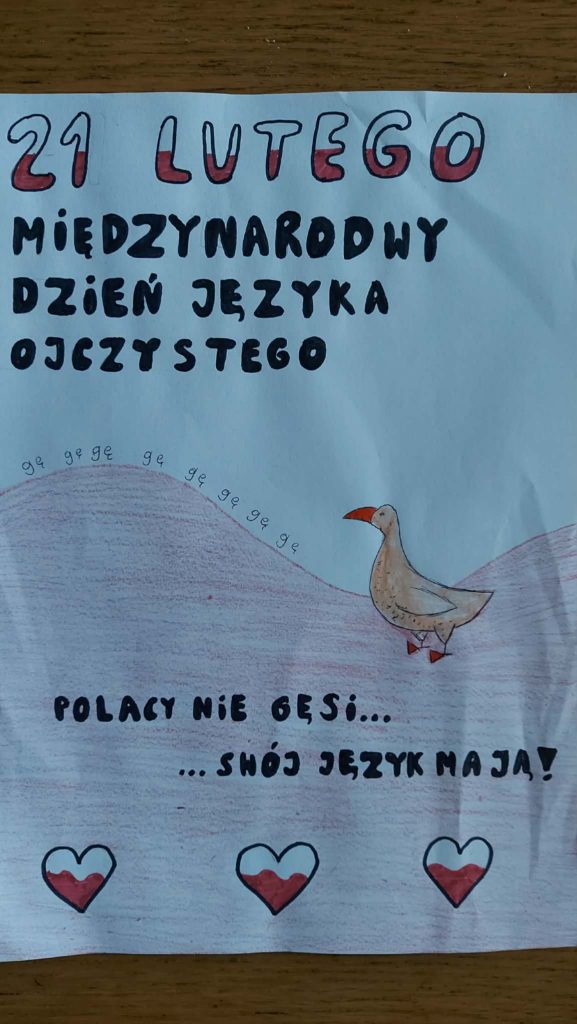 21 LUTEGO
MIĘDZYNARODWY
DZIEŃ JĘZYKA
OJCZYSTEGO
gę gę gę gę gę gę gę gę
POLACY NIE GĘSI...
...SWÓJ JĘZYK MAJĄ!